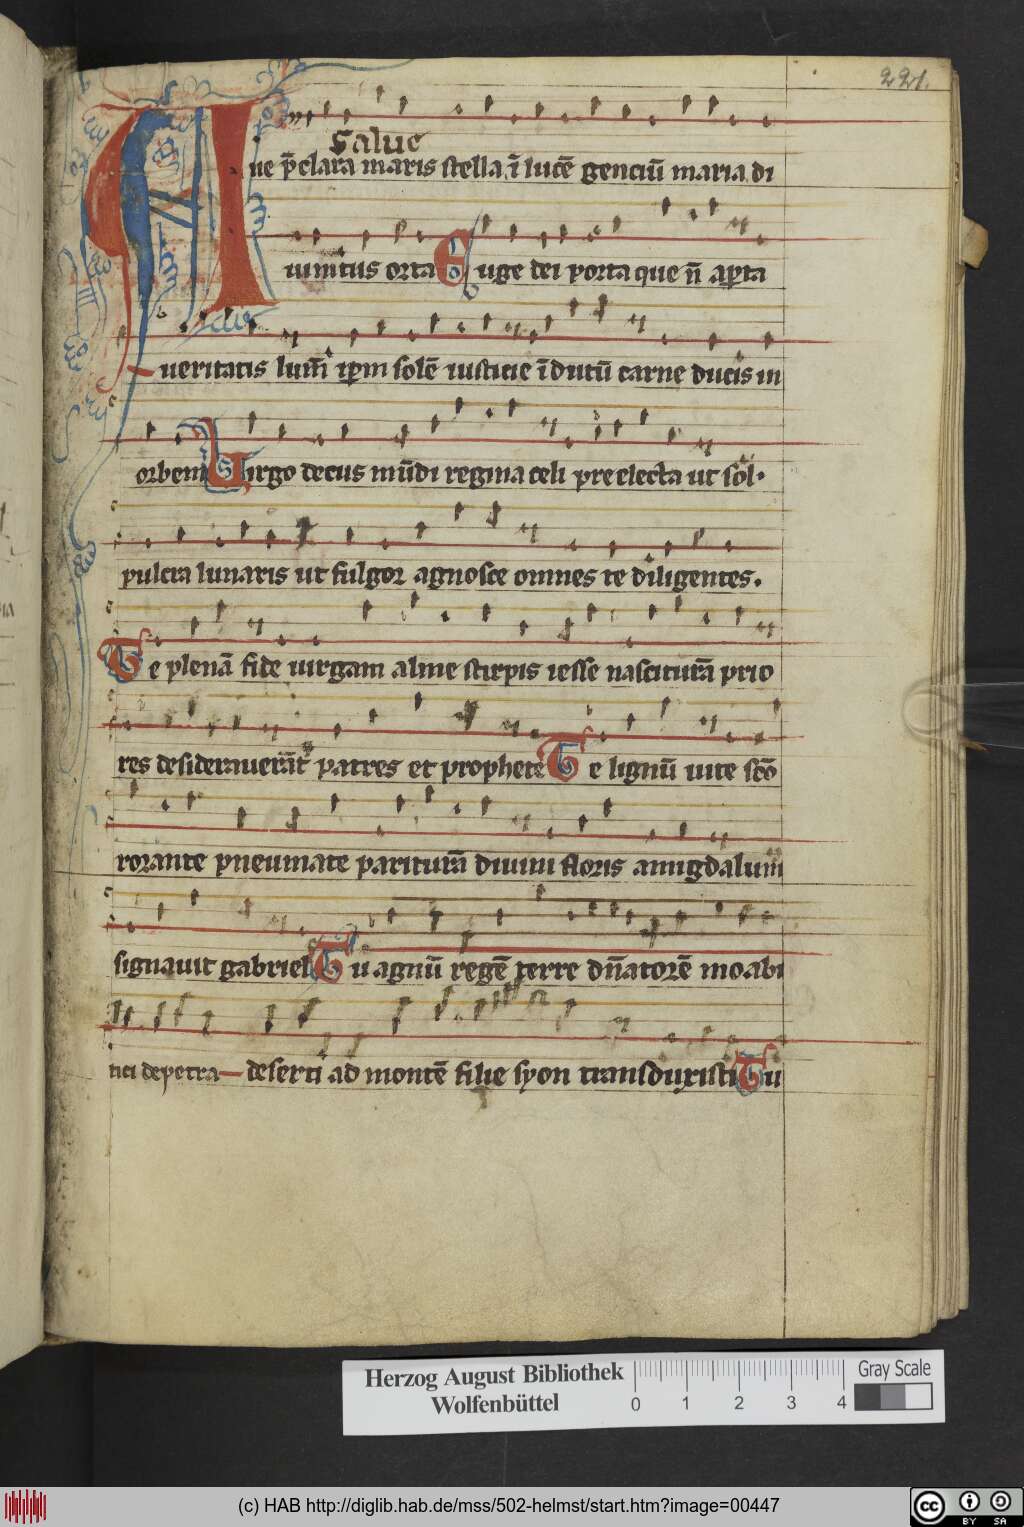 221.
Salue
Aue p̄clara maris stella. ī lucē genciū maria di
uinitus orta Euge dei porta que n̄ ap̱ta
ueritatis lum̄ ip̄m solē iusticie īdutū carne ducis in
orbem Uirgo decus mūdi regina celi preelecta ut sol·
pulcra lunaris ut fulgor agnosce omnes te diligentes.
Te plenā fide uirgam alme stirpis iesse nasciturā prio
res desiderauerāt patres et prophete Te lignū uite sc̄o
rorante pneumate pariturā diuini floris amigdalum
signauit gabriel Tu agnū regē terre dn̄atorē moabi
tici de petra deserti ad montē filie syon transduxisti Tu
Herzog August Bibliothek
Wolfenbüttel
0 1 2 3 4
Gray Scale
(c) HAB http://diglib.hab.de/mss/502-helmst/start.htm?image=00447
cc BY SA